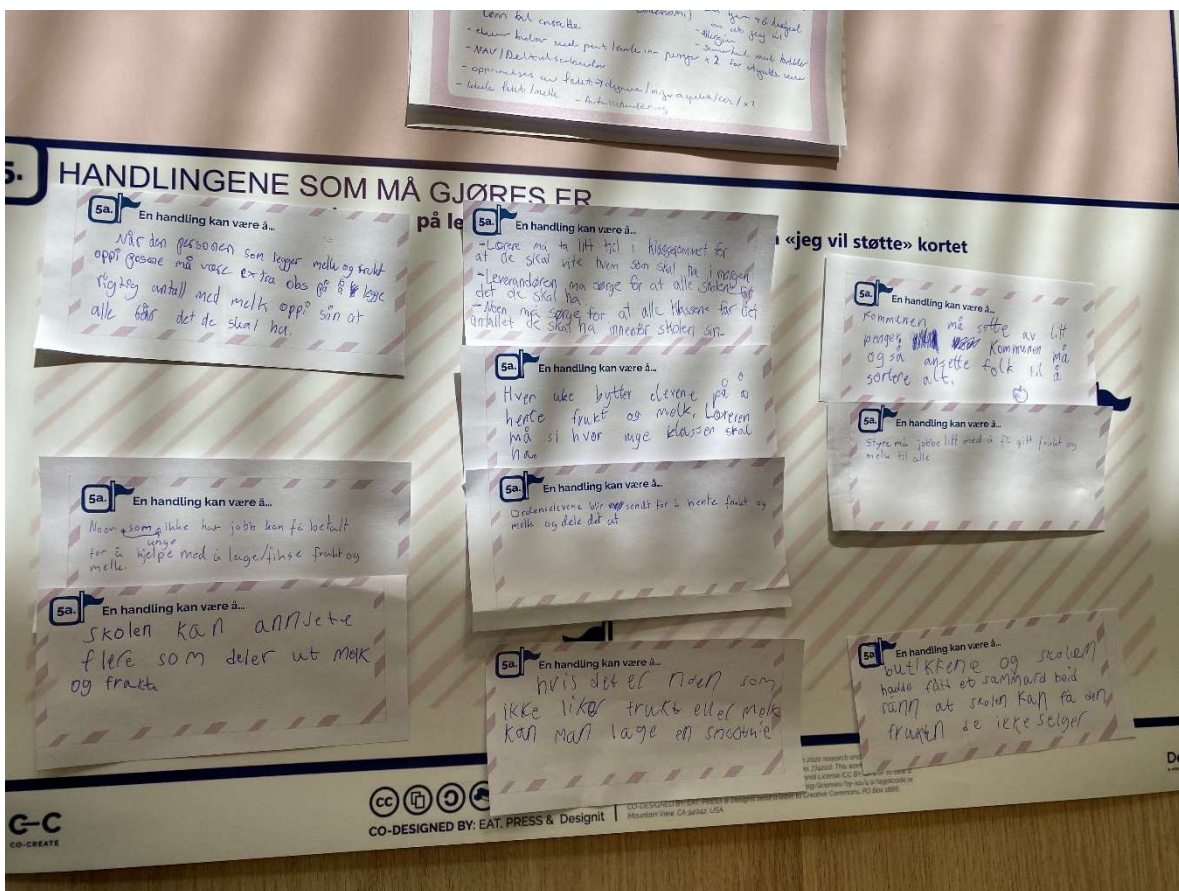 lønn til ansatte
+6 dugnad
om at jeg vil
- Allergien
- penger x 2 for utgifter
- NAV/Deltidsarbeider
- lokale frukt/melk - Avfallshåndtering
5.
HANDLINGENE SOM MÅ GJØRES ER
på le
«jeg vil støtte» kortet
5a.
En handling kan være å...
Når den personen som legger melk og frukt
oppi posene må være extra obs på å legge
rigtig antall med melk oppi sån at
alle får det de skal ha.
5a.
En handling kan være å...
Noen som ikke har jobb kan få betalt
unge
for å hjelpe med å lage/fikse frukt og
melk.
5a.
En handling kan være å...
skolen kan annsete
flere som deler ut melk
og frukt.
5a.
En handling kan være å...
- Lærere må ta litt tid i klasserommet for
at de skal vite hvem som skal ha i morgen
- Leverandøren må sørge for at alle skolene får
det de skal ha
- Noen må sørge for at alle klassene får det
antallet de skal ha innenfor skolen sin.
5a.
En handling kan være å...
Hver uke bytter elevene på å
hente frukt og melk. Læreren
må si hvor mye klassen skal
ha.
5a.
En handling kan være å...
Ordenselevene blir sendt for å hente frukt og
melk og dele det ut
5a.
En handling kan være å...
hvis det er noen som
ikke liker frukt eller melk
kan man lage en smoothie
5a.
En handling kan være å...
Kommunen må sette av litt
penger Kommunen må
også ansette folk til å
sortere alt.
5a.
En handling kan være å...
Styre må jobbe litt med å få gitt frukt og
melk til alle
5a.
En handling kan være å...
butikkene og skolen
hadde fått et sammard beid
sånn at skolen kan få den
frukten de ikke selger
C-C
CO-CREATE
cc
CO-DESIGNED BY: EAT, PRESS & Designit
Creative Commons, PO Box 1866,
Mountain View, CA 94042, USA
De